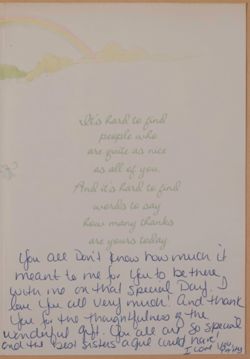 It's hard to find
people who
are quite as nice
as all of you.
And it's hard to find
words to say
how many thanks
are yours today.
You all Don't know how much it
meant to me for you to be there
with me on that special Day. I
love you all very much! And thank
you for the thoughtfulness & the
wonderful gift. You all are so special
and the best sisters a girl could have
I love you